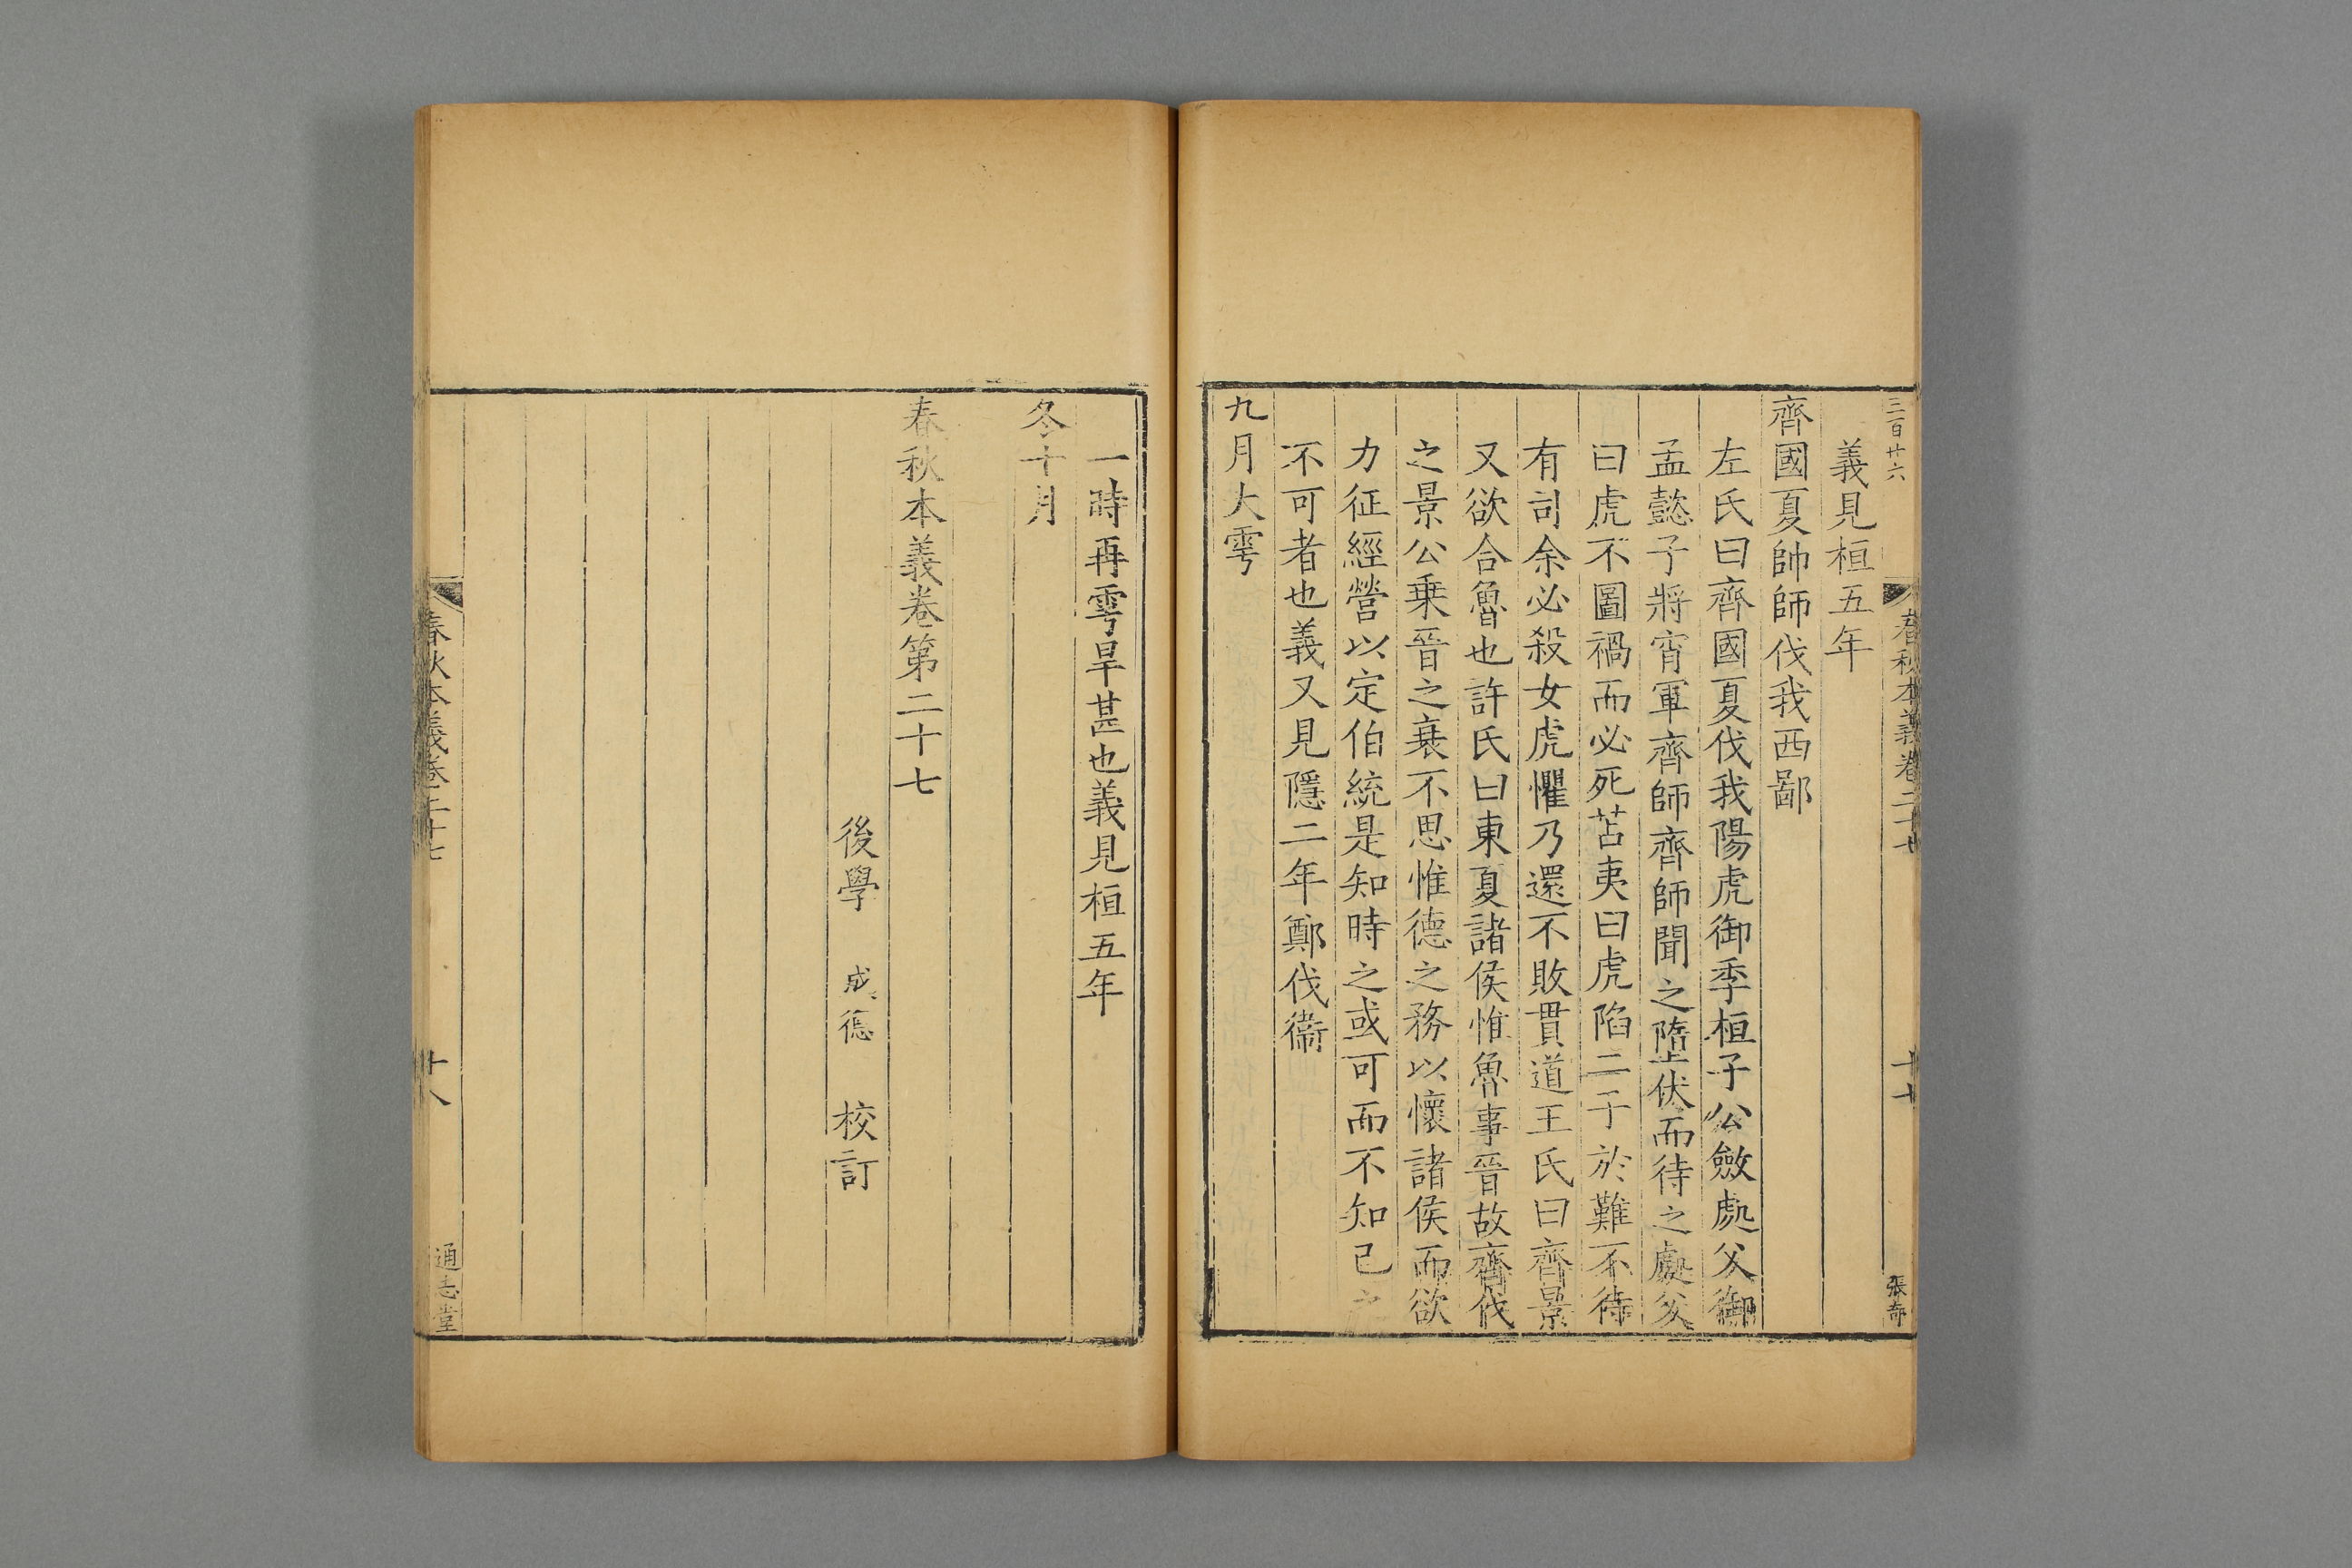 三百廿六
春秋本義卷二十七
十七
張奇
義見桓五年
齊國夏帥師伐我西鄙
左氏曰齊國夏伐我陽虎御季桓子公斂處父御
孟懿子將宵軍齊師齊師聞之墮伏而待之處父
曰虎不圖禍而必死苫夷曰虎陷二子於難不待
有司余必殺女虎懼乃還不敗貫道王氏曰齊景
又欲合魯也許氏曰東夏諸侯惟魯事晉故齊伐
之景公乗晉之衰不思惟德之務以懷諸侯而欲
力征經營以定伯統是知時之或可而不知已之
不可者也義又見隱二年鄭伐衞
九月大雩
一時再雩旱甚也義見桓五年
冬十月
春秋本義卷第二十七
後學 成德 校訂
春秋本義卷二十七
十八
通志堂